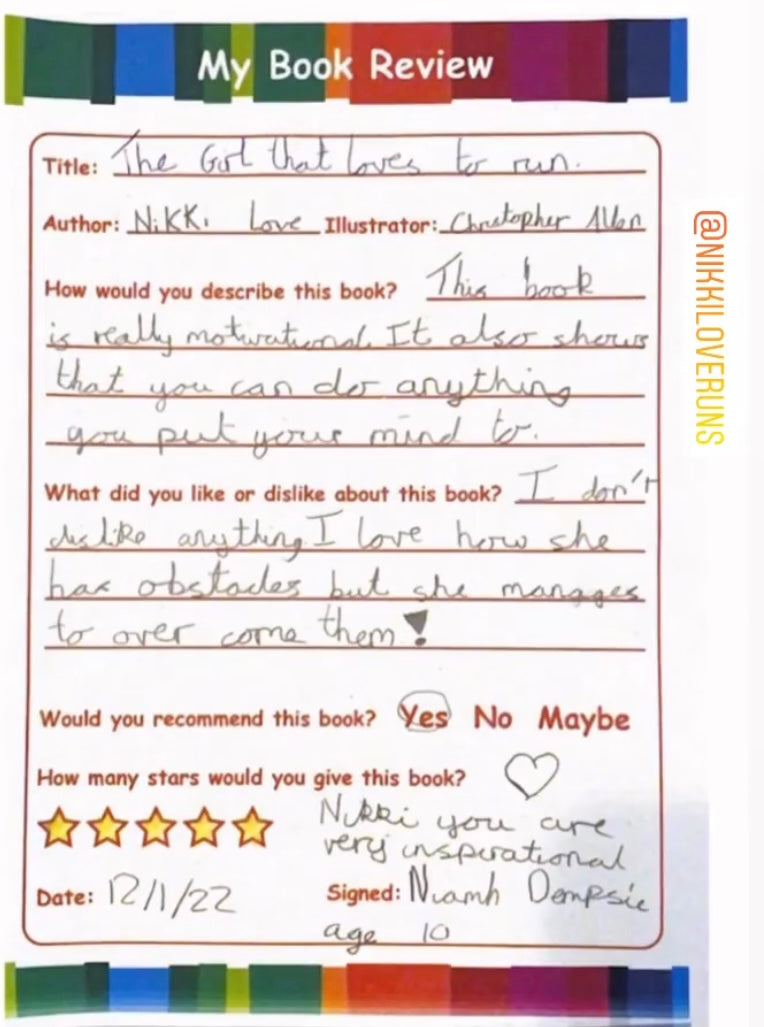 My Book Review
Title: The Girl that loves to run.
Author: Nikki Love Illustrator: Christopher Allen
How would you describe this book? This book
is really motivational. It also shows
that you can do anything
you put your mind to.
What did you like or dislike about this book? I don't
dislike anything I love how she
has obstacles but she manages
to over come them!
Would you recommend this book? Yes No Maybe
How many stars would you give this book?
Nikki you are
very inspirational
Date: 12/1/22 Signed: Niamh Dempsie
age 10
@NIKKILOVERUNS